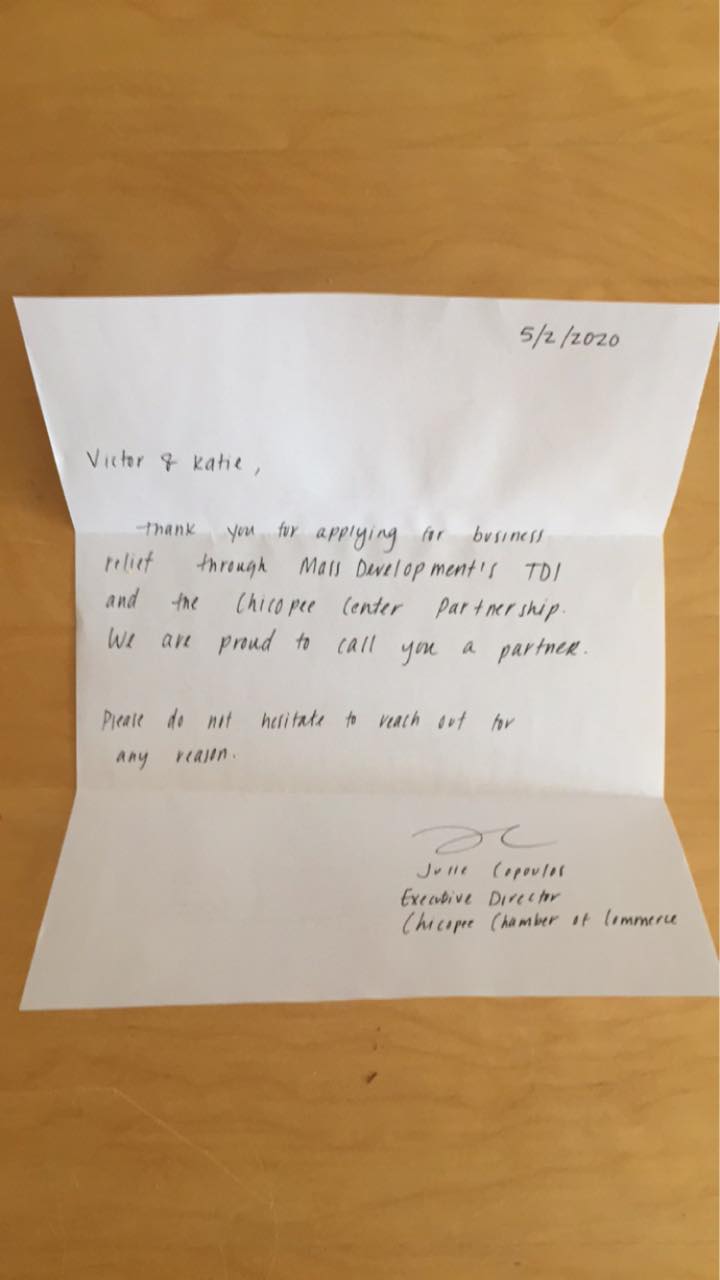 5/2/2020
Victor & Katie,
Thank you for applying for business
relief through Mass Development's TDI
and the Chicopee Center Partnership.
We are proud to call you a partner.
Please do not hesitate to reach out for
any reason.
Julie Copoulos
Executive Director
Chicopee Chamber of Commerce